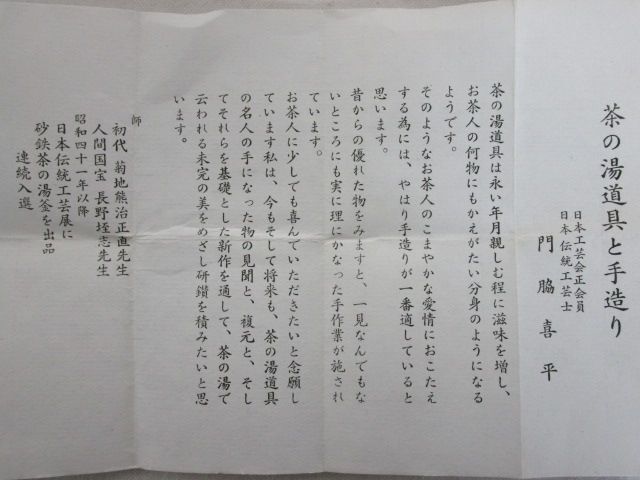 茶の湯道具と手造り
日本工芸会正会員
日本伝統工芸士
門脇喜平
茶の湯道具は永い年月親しむ程に滋味を増し、
お茶人の何物にもかえがたい分身のようになる
ようです。
そのようなお茶人のこまやかな愛情におこたえ
する為には、やはり手造りが一番適していると
思います。
昔からの優れた物をみますと、一見なんでもな
いところにも実に理にかなった手作業が施され
ています。
お茶人に少しでも喜んでいただきたいと念願し
ています私は、今もそして将来も、茶の湯道具
の名人の手になった物の見聞と、復元と、そし
てそれらを基礎とした新作を通して、茶の湯で
云われる未完の美をめざし研鑽を積みたいと思
います。
師
初代 菊地熊治正直先生
人間国宝 長野垤志先生
昭和四十一年以降
日本伝統工芸展に
砂鉄茶の湯釜を出品
連続入選